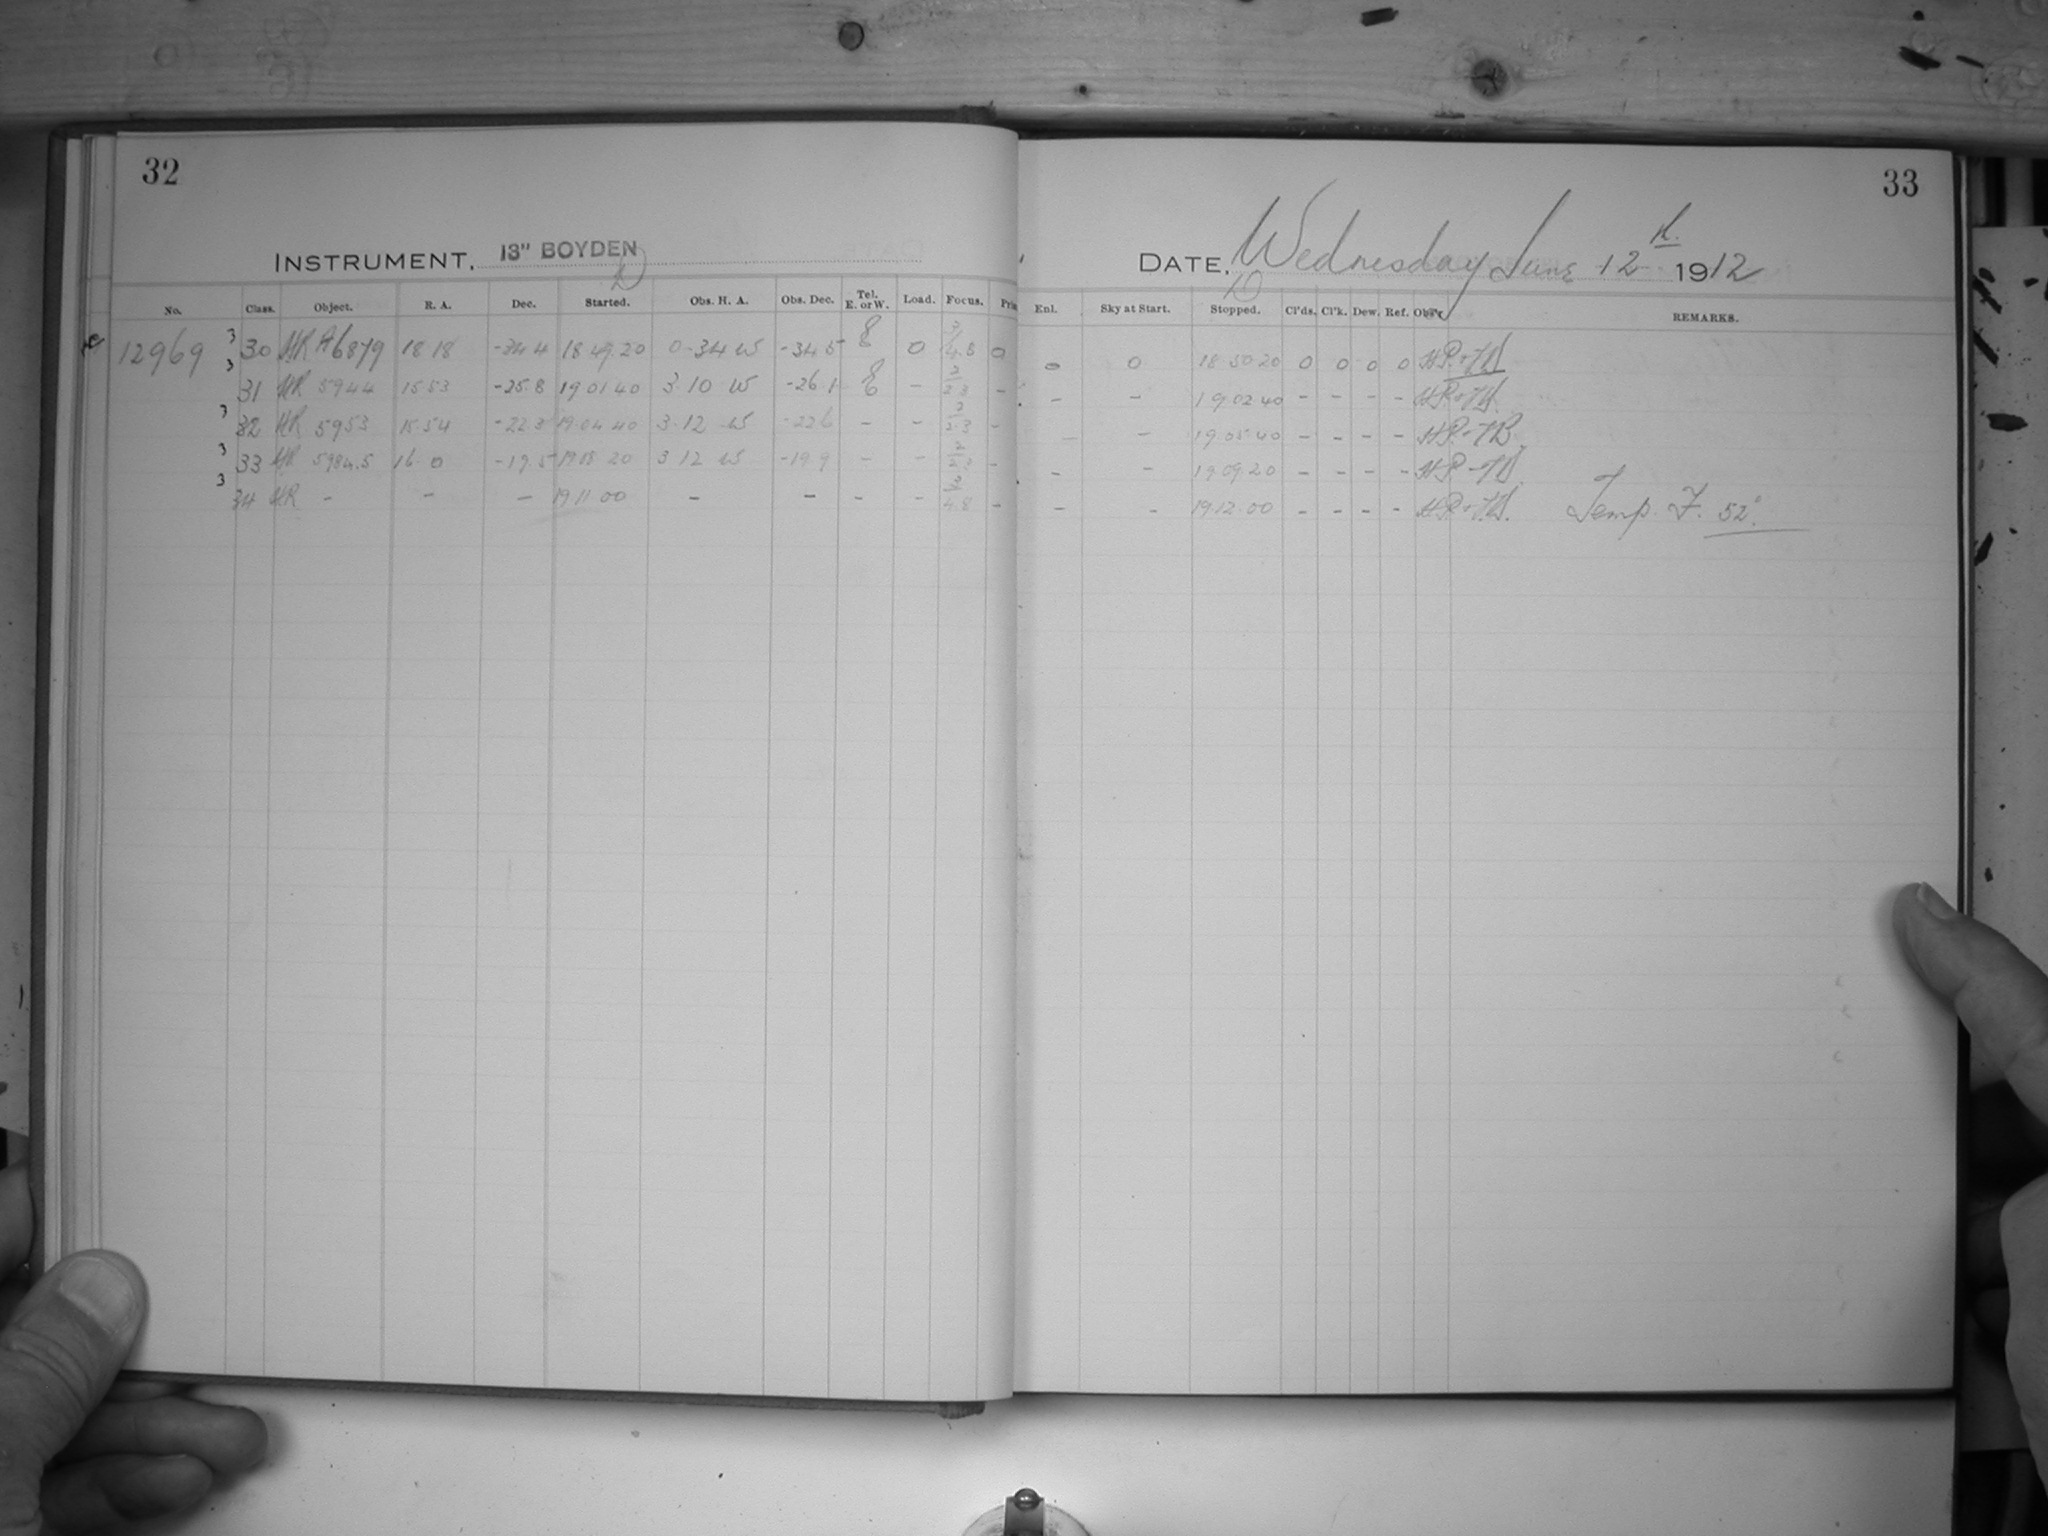 32
INSTRUMENT, 13" BOYDEN
No. Class. Object. R. A. Dec. Started. Obs. H. A. Obs. Dec. Tel. E. or W. Load. Focus.
12969 3 30 HR A6879 18 18 -34 4 18 49 20 0-34 W -34 5 E 0 4.8 0
3 31 HR 5944 15 53 -25.8 19 01 40 3 10 W -26 1 E - 2.3 -
3 32 HR 5953 15 54 -22 3 19 04 40 3 12 W -22 6 - - 2.3 -
3 33 HR 5984.5 16 0 -19.5 19 08 20 3 12 W -19 9 - - -
3 34 HR - - - 19 11 00 - - - - 4.8 -
33
DATE, Wednesday June 12th 1912
Enl. Sky at Start. Stopped. Cl'ds. Cl'k. Dew. Ref. Obs'r. REMARKS.
0 0 18 50 20 0 0 0 0
- - 19 02 40 - - - -
- - 19 05 40 - - - -
- - 19 09 20 - - - -
- - 19 12 00 - - - - Temp. F. 52°